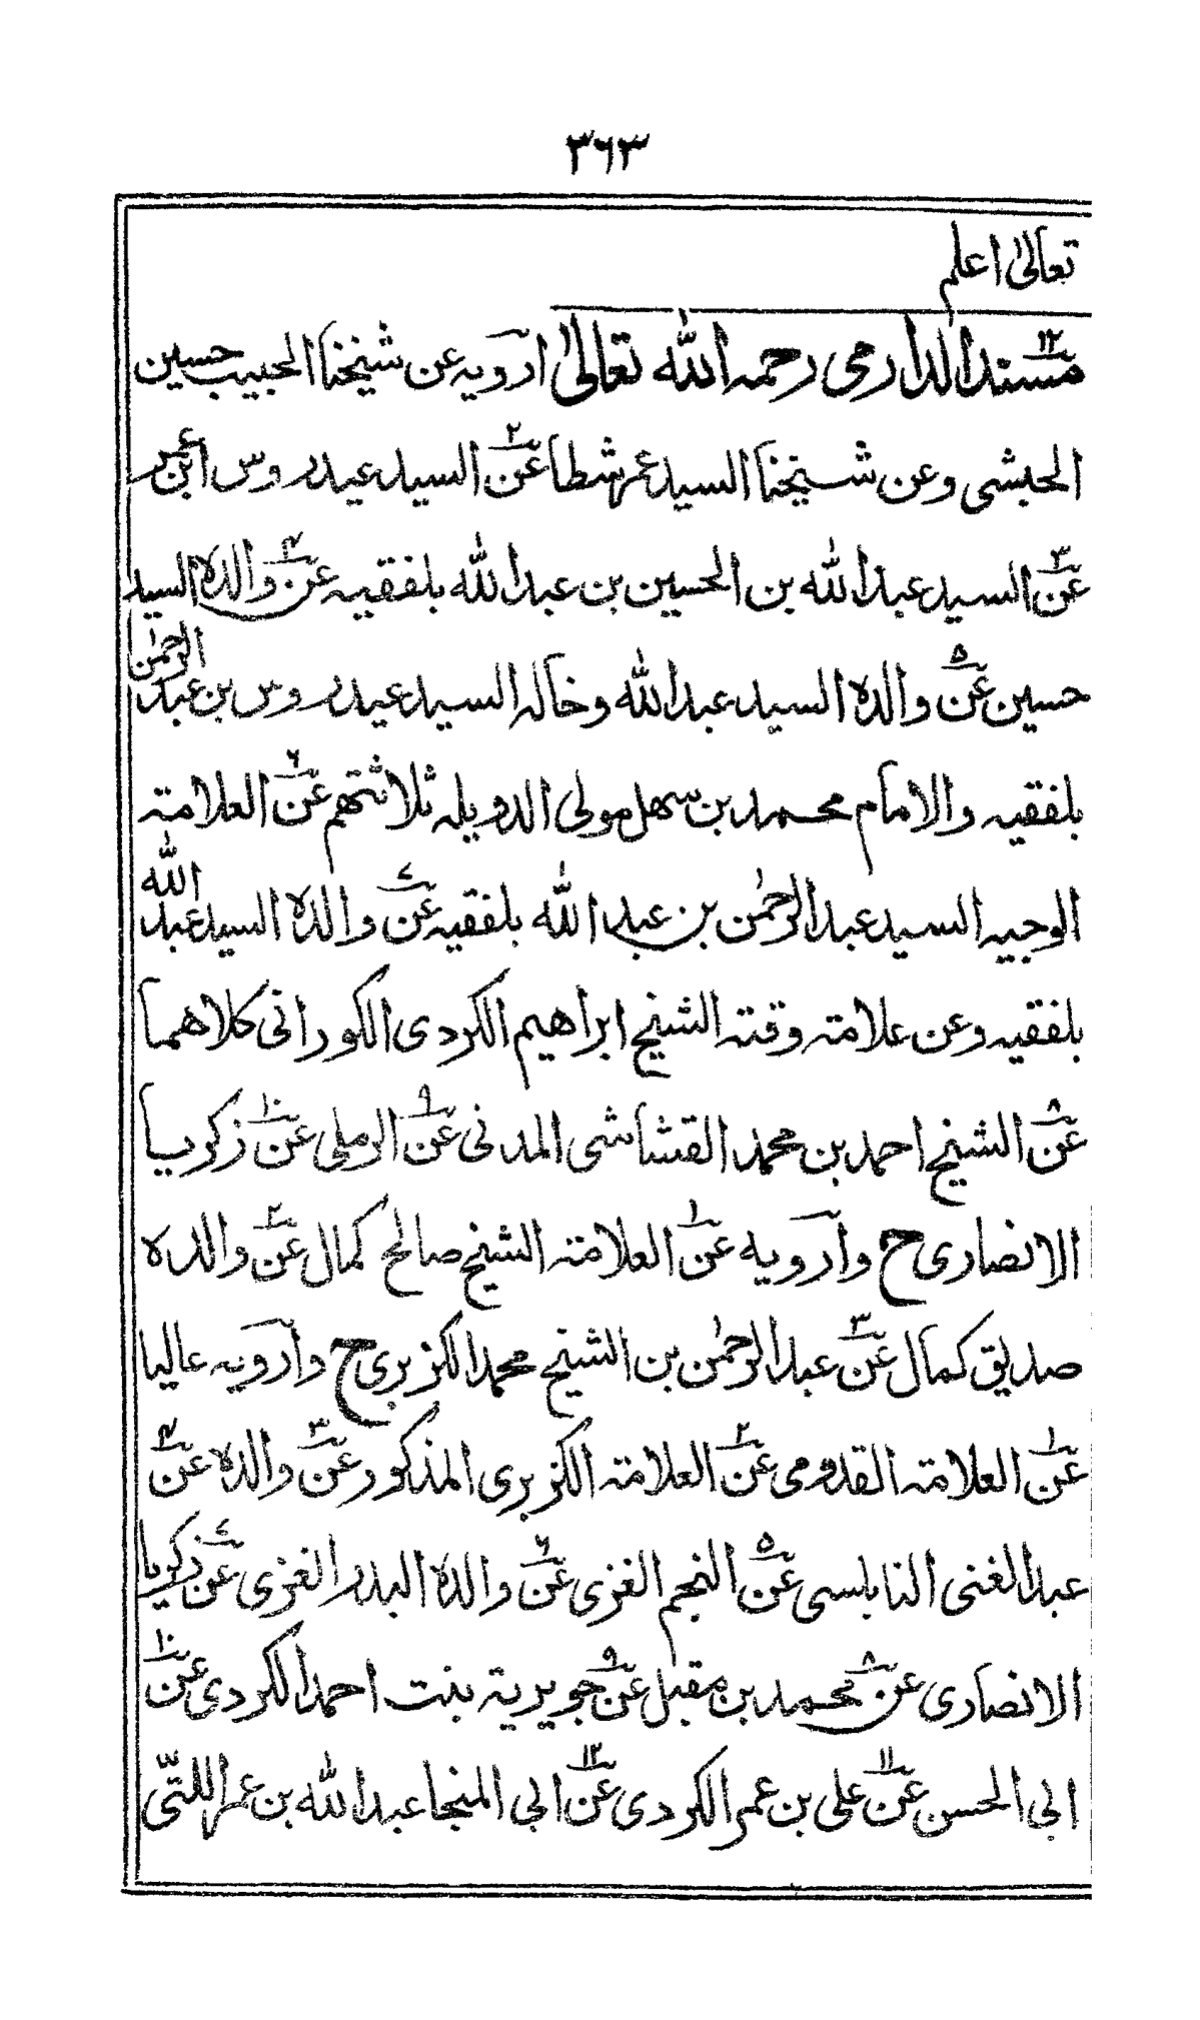 ٣٦٣
تعالىٰ اعلم
١٢
مسند الدارمى رحمه الله تعالىٰ ارويه عن شيخنا الحبيب حسين
الحبشى وعن شيخنا السيد عمر شطا عن٢ السيد عيدروس ابن عمر
عن٣ السيد عبد الله بن الحسين بن عبد الله بلفقيه عن٤ والده السيد
حسين عن٥ والده السيد عبد الله وخاله السيد عيدروس بن عبد الرحمٰن
بلفقيه والامام محمد بن سهل مولى الدويله ثلاثتهم عن٦ العلامة
الوجيه السيد عبد الرحمٰن بن عبد الله بلفقيه عن٧ والده السيد عبد الله
بلفقيه وعن علامة وقته الشيخ ابراهيم الكردى الكورانى كلاهما
عن٨ الشيخ احمد بن محمد القشاشى المدنى عن٩ الرملى عن١٠ زكريا
الانصارى ح وارويه عن١ العلامة الشيخ صالح كمال عن٢ والده
صديق كمال عن٣ عبد الرحمٰن بن الشيخ محمد الكزبرى ح وارويه عاليا
عن١ العلامة القدومى عن٢ العلامة الكزبرى المذكور عن٣ والده عن٤
عبد الغنى النابلسى عن٥ النجم الغزى عن٦ والده البدر الغزى عن٧ زكريا
الانصارى عن٨ محمد بن مقبل عن٩ جويرية بنت احمد الكردى عن١٠
ابى الحسن عن١١ على بن عمر الكردى عن١٢ ابى المنجا عبد الله بن عمر اللتّى